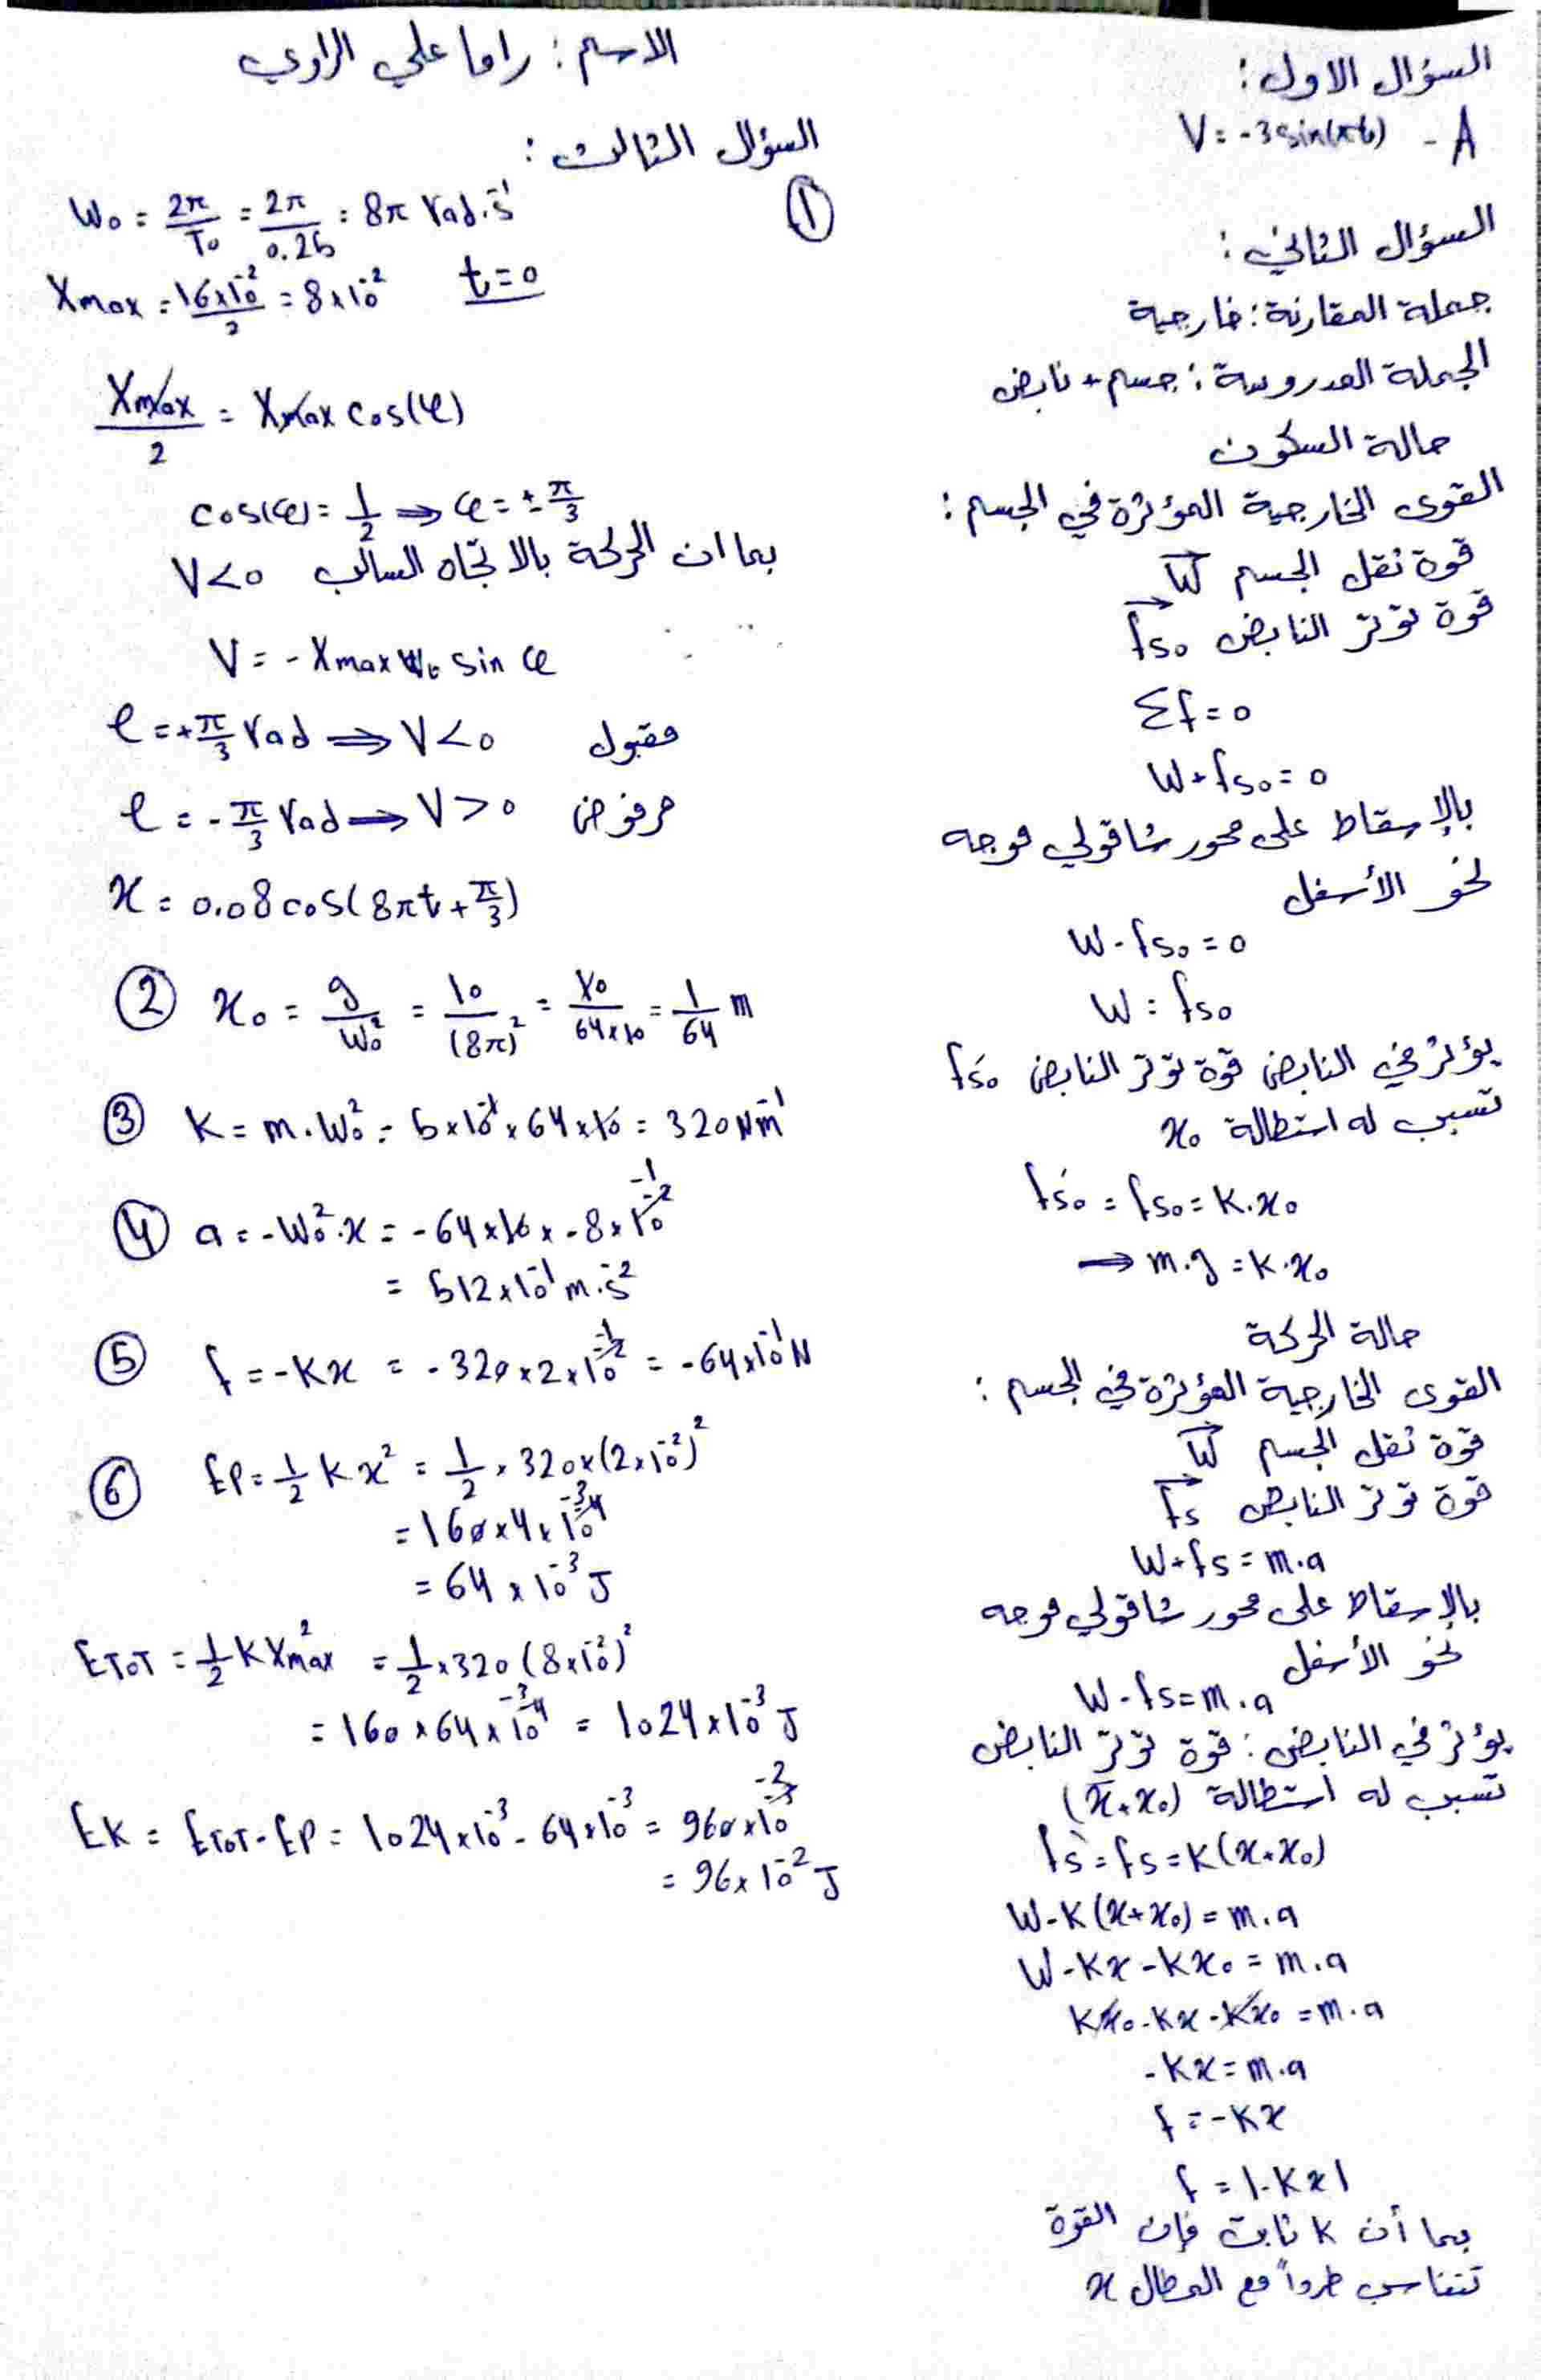 الاسم : راما علي الراوي
السؤال الاول :
A - V = -3 sin(πt)
السؤال الثاني :
جملة المقارنة : خارجية
الجملة المدروسة : جسم + نابض
حالة السكون
القوى الخارجية المؤثرة في الجسم :
قوة ثقل الجسم W
قوة توتر النابض fs₀
Σf = 0
W + fs₀ = 0
بالإسقاط على محور شاقولي موجه
نحو الأسفل
W - fs₀ = 0
W = fs₀
يؤثر في النابض قوة توتر النابض fs₀'
تسبب له استطالة x₀
fs₀' = fs₀ = K.x₀
⇒ m.g = K.x₀
حالة الحركة
القوى الخارجية المؤثرة في الجسم :
قوة ثقل الجسم W
قوة توتر النابض fs
W + fs = m.a
بالإسقاط على محور شاقولي موجه
نحو الأسفل
W - fs = m.a
يؤثر في النابض : قوة توتر النابض
تسبب له استطالة (x + x₀)
fs' = fs = K(x + x₀)
W - K(x + x₀) = m.a
W - Kx - Kx₀ = m.a
Kx₀ - Kx - Kx₀ = m.a
-Kx = m.a
f = -Kx
f = |-Kx|
بما أن K ثابت فإن القوة
تتناسب طرداً مع المطال x
السؤال الثالث :
①
W₀ = 2π/T₀ = 2π/0.25 = 8π rad.s⁻¹
Xmax = 16×10⁻²/2 = 8×10⁻² t=0
Xmax/2 = Xmax cos(φ)
cos(φ) = 1/2 ⇒ φ = ± π/3
بما ان الحركة بالاتجاه السالب V<0
V = -Xmax W₀ sin φ
φ = +π/3 rad ⇒ V<0 مقبول
φ = -π/3 rad ⇒ V>0 مرفوض
x = 0.08 cos(8πt + π/3)
② x₀ = g/W₀² = 10/(8π)² = 10/64×10 = 1/64 m
③ K = m.W₀² = 5×10⁻¹×64×10 = 320 N.m⁻¹
④ a = -W₀².x = -64×10×-8×10⁻²
= 512×10⁻¹ m.s⁻²
⑤ f = -Kx = -320×2×10⁻² = -64×10⁻¹ N
⑥ EP = 1/2 K x² = 1/2 × 320×(2×10⁻²)²
= 160×4×10⁻⁴
= 64×10⁻³ J
ETOT = 1/2 K Xmax² = 1/2 ×320 (8×10⁻²)²
= 160×64×10⁻⁴ = 1024×10⁻³ J
EK = ETOT - EP = 1024×10⁻³ - 64×10⁻³ = 960×10⁻³
= 96×10⁻² J